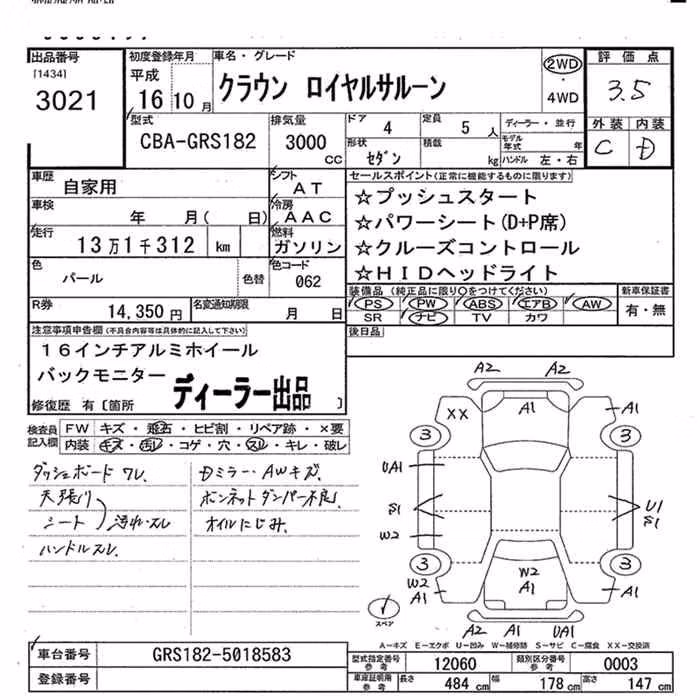 出品番号
[1434]
3021
初度登録年月
平成
16年10月
車名・グレード
クラウン ロイヤルサルーン
2WD
・
4WD
評価点
3.5
外装 内装
C D
型式
CBA-GRS182
排気量
3000
CC
ドア 4
定員 5 人
形状 セダン
積載 kg
ディーラー・並行
モデル年式 年
ハンドル 左・右
車歴 自家用
シフト AT
車検 年 月( 日)
冷房 AAC
走行 13万1千312 km
燃料 ガソリン
色 パール
色替
色コード 062
R券 14,350円
名変通知期限 月 日
セールスポイント(正常に機能するものに限ります)
☆プッシュスタート
☆パワーシート(D+P席)
☆クルーズコントロール
☆HIDヘッドライト
装備品 (純正品に限り○をつけてください)
PS PW ABS エアB AW
SR ナビ TV カワ
新車保証書
有・無
後日品
注意事項申告欄(不具合内容等は具体的に記入して下さい)
16インチアルミホイール
バックモニター
ディーラー出品
修復歴 有〔箇所 〕
検査員記入欄
FW キズ・飛石・ヒビ割・リペア跡・×要
内装 キズ・汚れ・コゲ・穴・スレ・キレ・破レ
ダッシュボード ワレ.
天張り
シート 汚れ・スレ
ハンドルスレ.
Dミラー・AWキズ.
ボンネットダンパー不良.
オイルにじみ.
A2 A2
XX A1 A1
3 3
UA1
S1 U1
S1
W2
3 3
W2 W2
A1 A1 A1
スペア
A2 A1 UA1
A－キズ E－エクボ U－凹み W－補修跡 S－サビ C－腐食 XX－交換済
車台番号 GRS182-5018583
登録番号
型式指定番号 参考 12060
類別区分番号 参考 0003
車庫証明用 参考 長さ 484 cm 幅 178 cm 高さ 147 cm